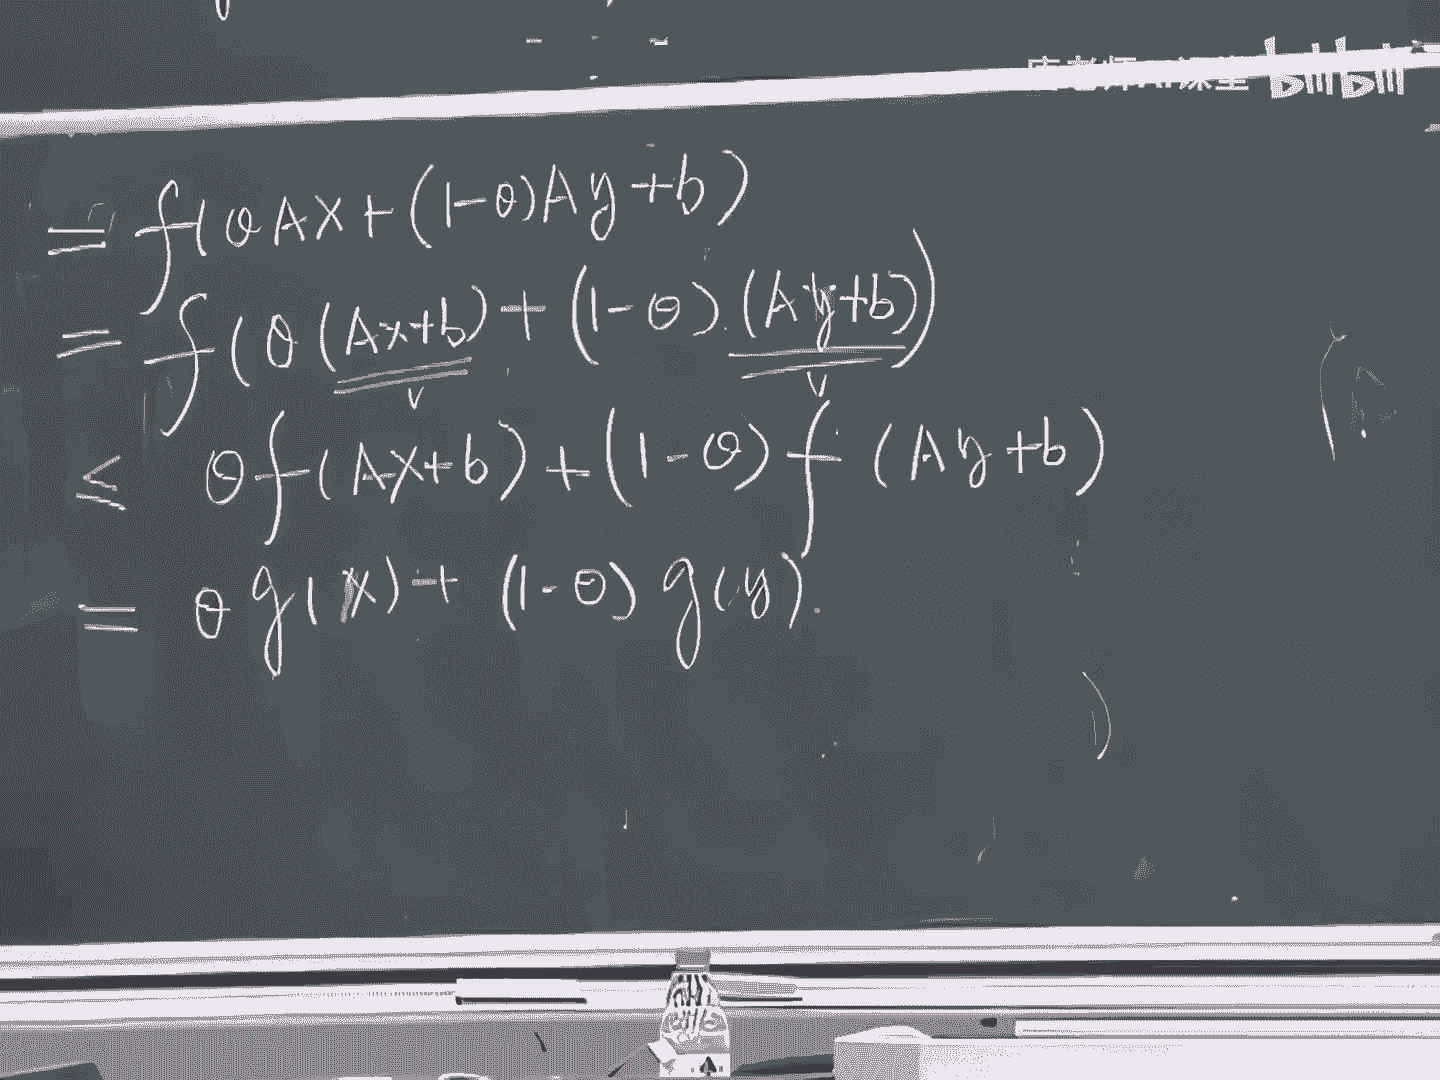 老师AI课堂 bilibili
= f(θAx+(1-θ)Ay+b)
= f(θ(Ax+b)+(1-θ).(Ay+b))
≤ θf(Ax+b)+(1-θ)f(Ay+b)
= θg(x)+(1-θ)g(y).